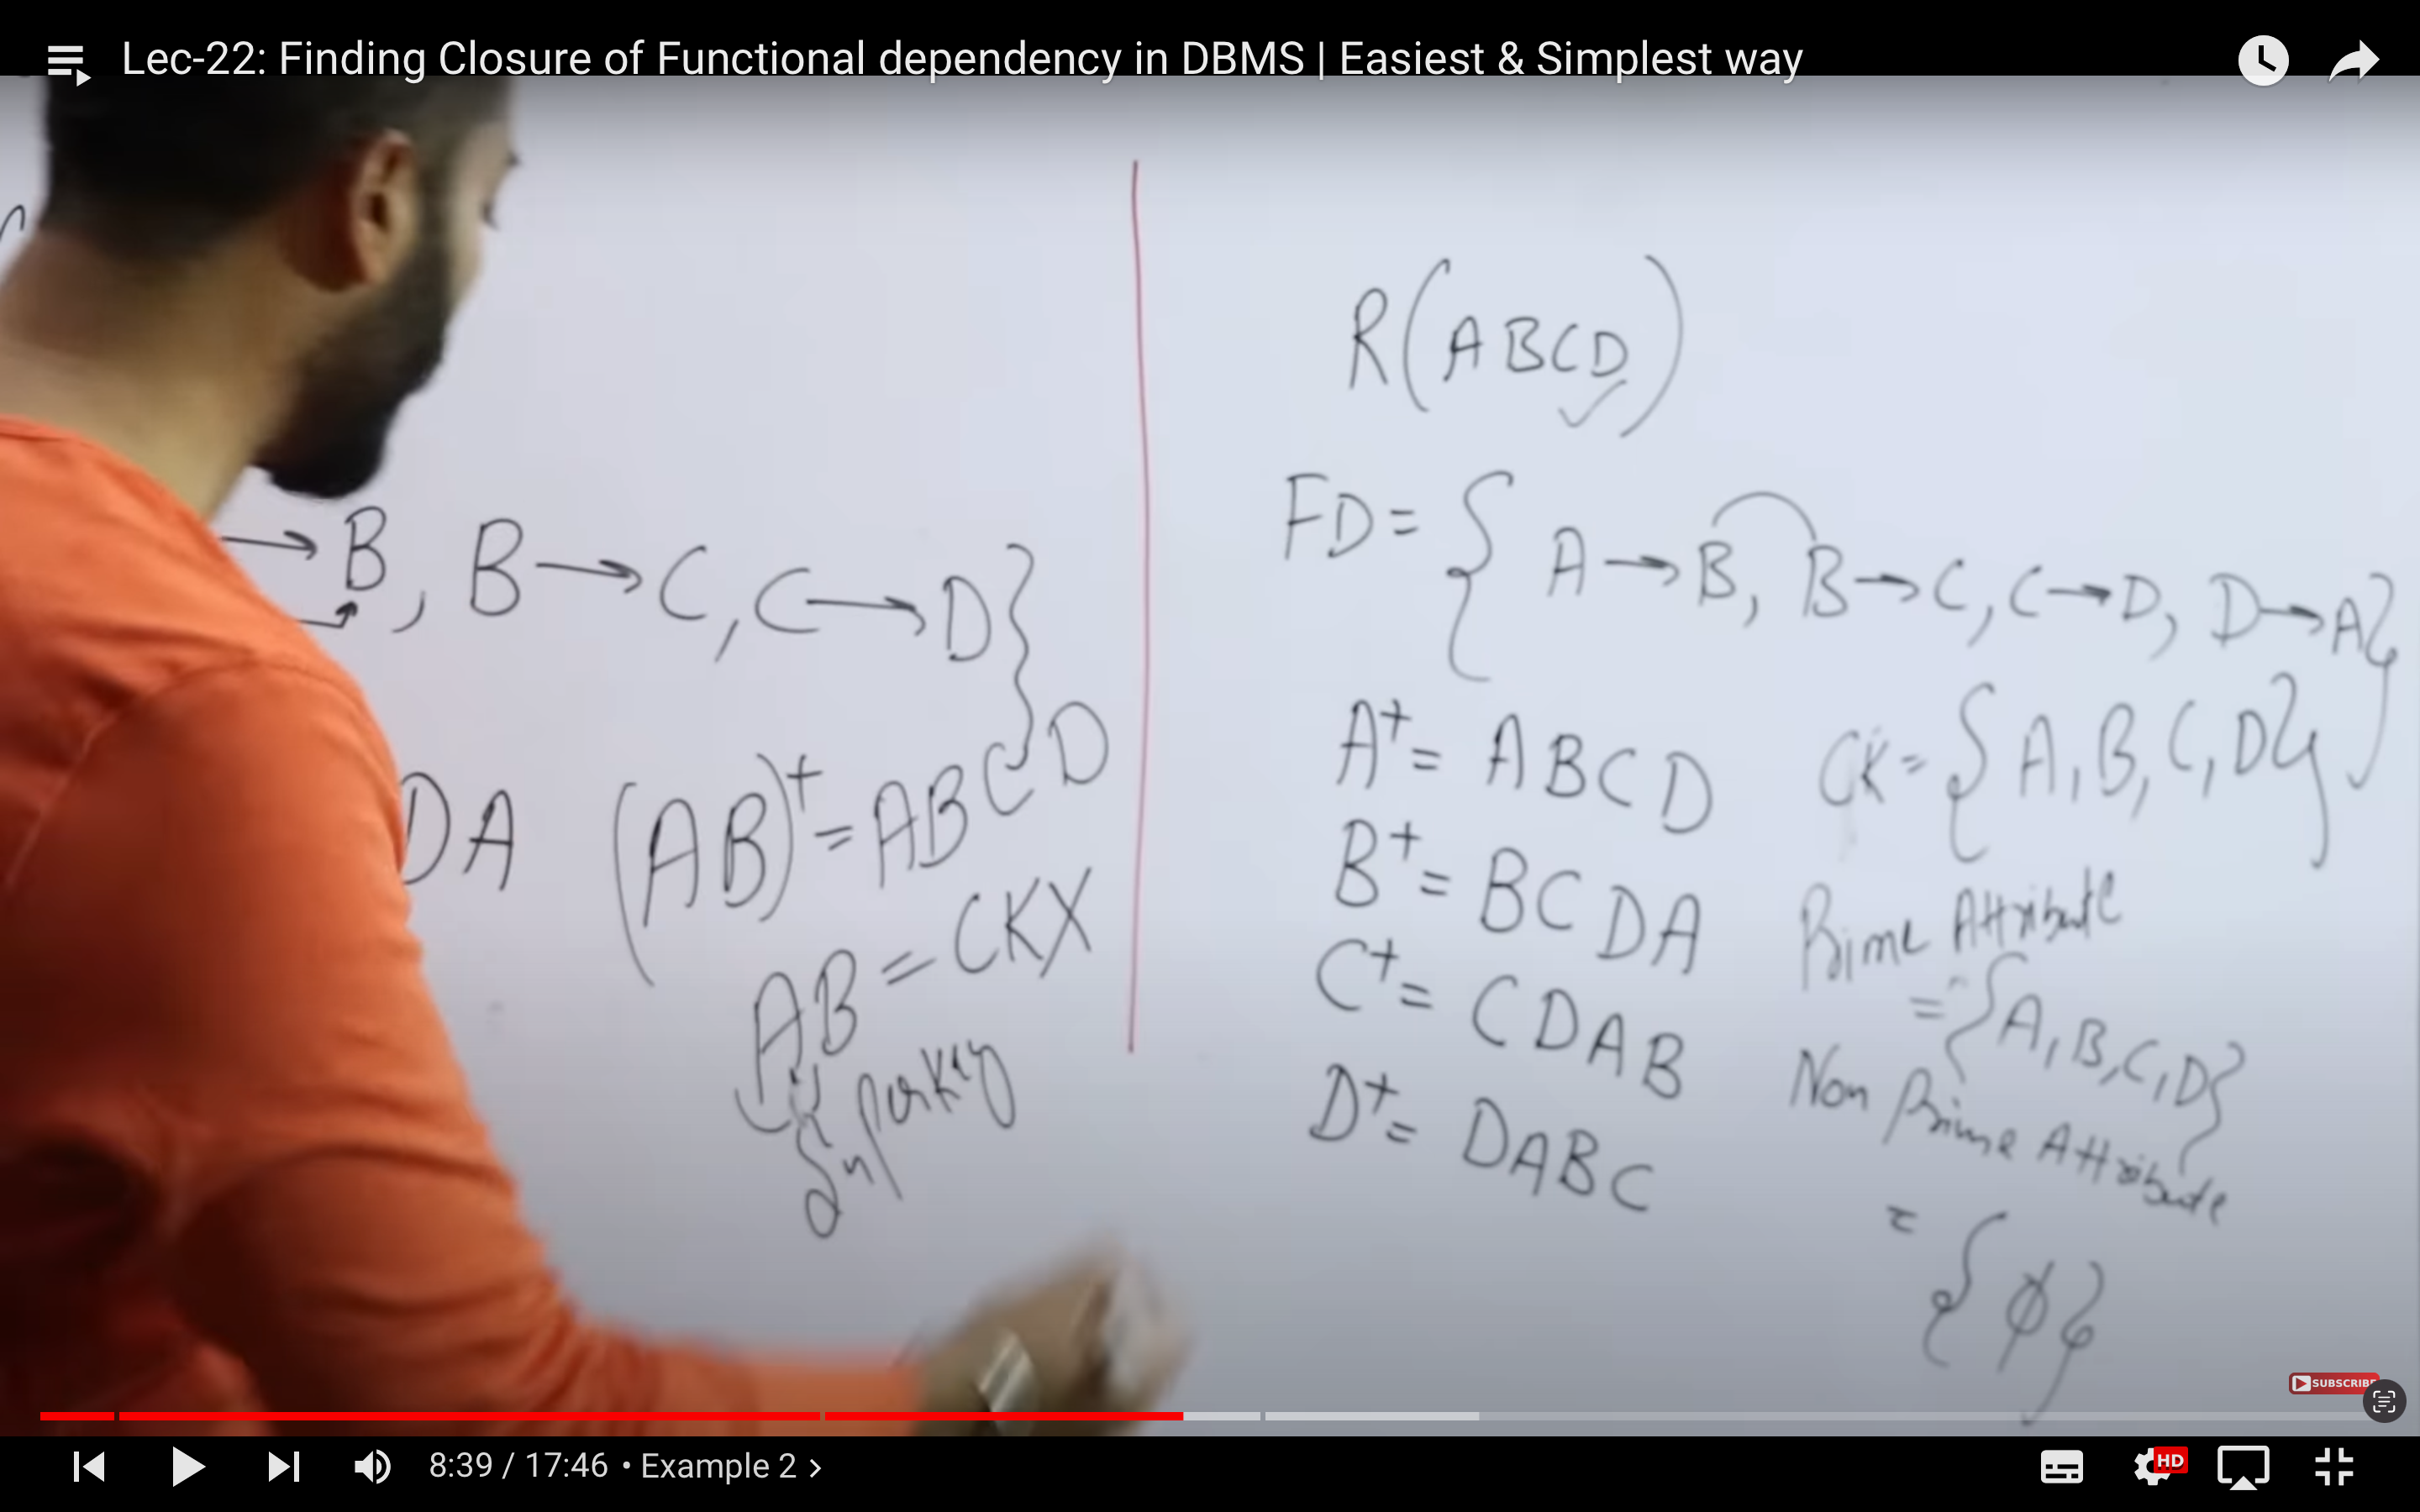 Lec-22: Finding Closure of Functional dependency in DBMS | Easiest & Simplest way
→ B, B → C, C → D}
DA (AB)⁺ = ABCD
AB = CKX
R(ABCD)
FD = { A → B, B → C, C → D, D → A}
A⁺ = ABCD
B⁺ = BCDA
C⁺ = CDAB
D⁺ = DABC
CK = {A, B, C, D}
Prime Attribute
= {A, B, C, D}
Non Prime Attribute
= {ϕ}
SUBSCRIBE
8:39 / 17:46 • Example 2 >
HD